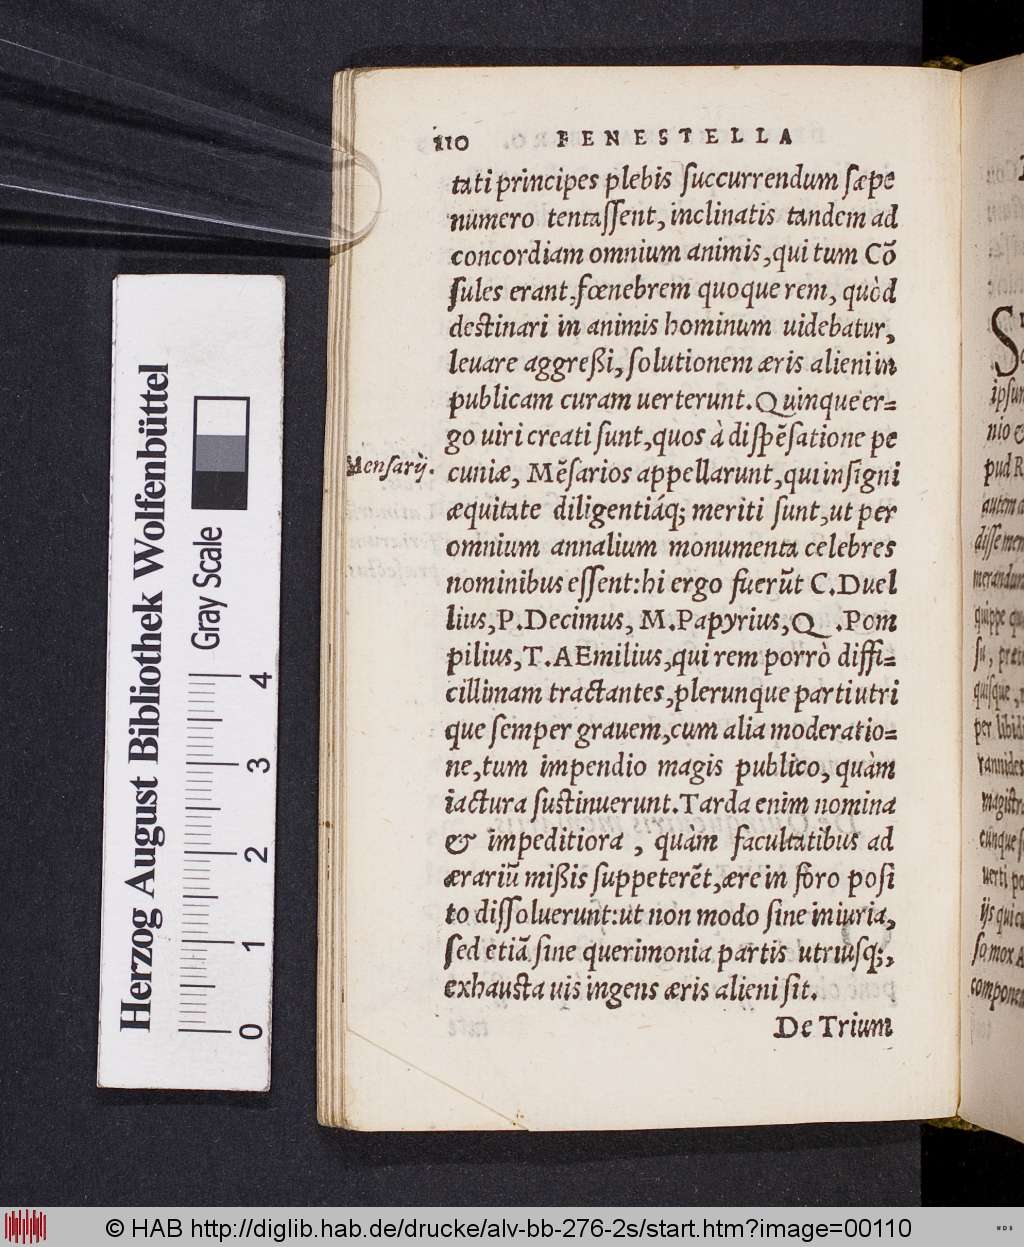 110 FENESTELLA
tati principes plebis ſuccurrendum ſæpe
numero tentaſſent, inclinatis tandem ad
concordiam omnium animis, qui tum Cō
ſules erant, fœnebrem quoque rem, quòd
destinari in animis hominum uidebatur,
leuare aggreßi, ſolutionem æris alieni in
publicam curam uerterunt. Quinque er-
go uiri creati ſunt, quos à diſpēſatione pe
Menſarij.
cuniæ, Mēſarios appellarunt, qui inſigni
æquitate diligentiáq; meriti ſunt, ut per
omnium annalium monumenta celebres
nominibus eſſent: hi ergo fuerūt C. Duel
lius, P. Decimus, M. Papyrius, Q. Pom
pilius, T. AEmilius, qui rem porrò diffi-
cillimam tractantes, plerunque parti utri
que ſemper grauem, cum alia moderatio-
ne, tum impendio magis publico, quàm
iactura ſustinuerunt. Tarda enim nomina
& impeditiora, quàm facultatibus ad
ærariū mißis ſuppeterēt, ære in foro poſi
to diſſoluerunt: ut non modo ſine iniuria,
ſed etiā ſine querimonia partis utriuſq;,
exhausta uis ingens æris alieni ſit.
De Trium
S
ipſum
nio &
pud R
autem
diſſe mem
merandum
quippe qu
ſu, præt
quiſque,
per libidi
rannides
magiſtr
cunque ſ
uerti po
ijs qui cu
ſo mox A
componen
Herzog August Bibliothek Wolfenbüttel
Gray Scale
0 1 2 3 4
© HAB http://diglib.hab.de/drucke/alv-bb-276-2s/start.htm?image=00110
WDB